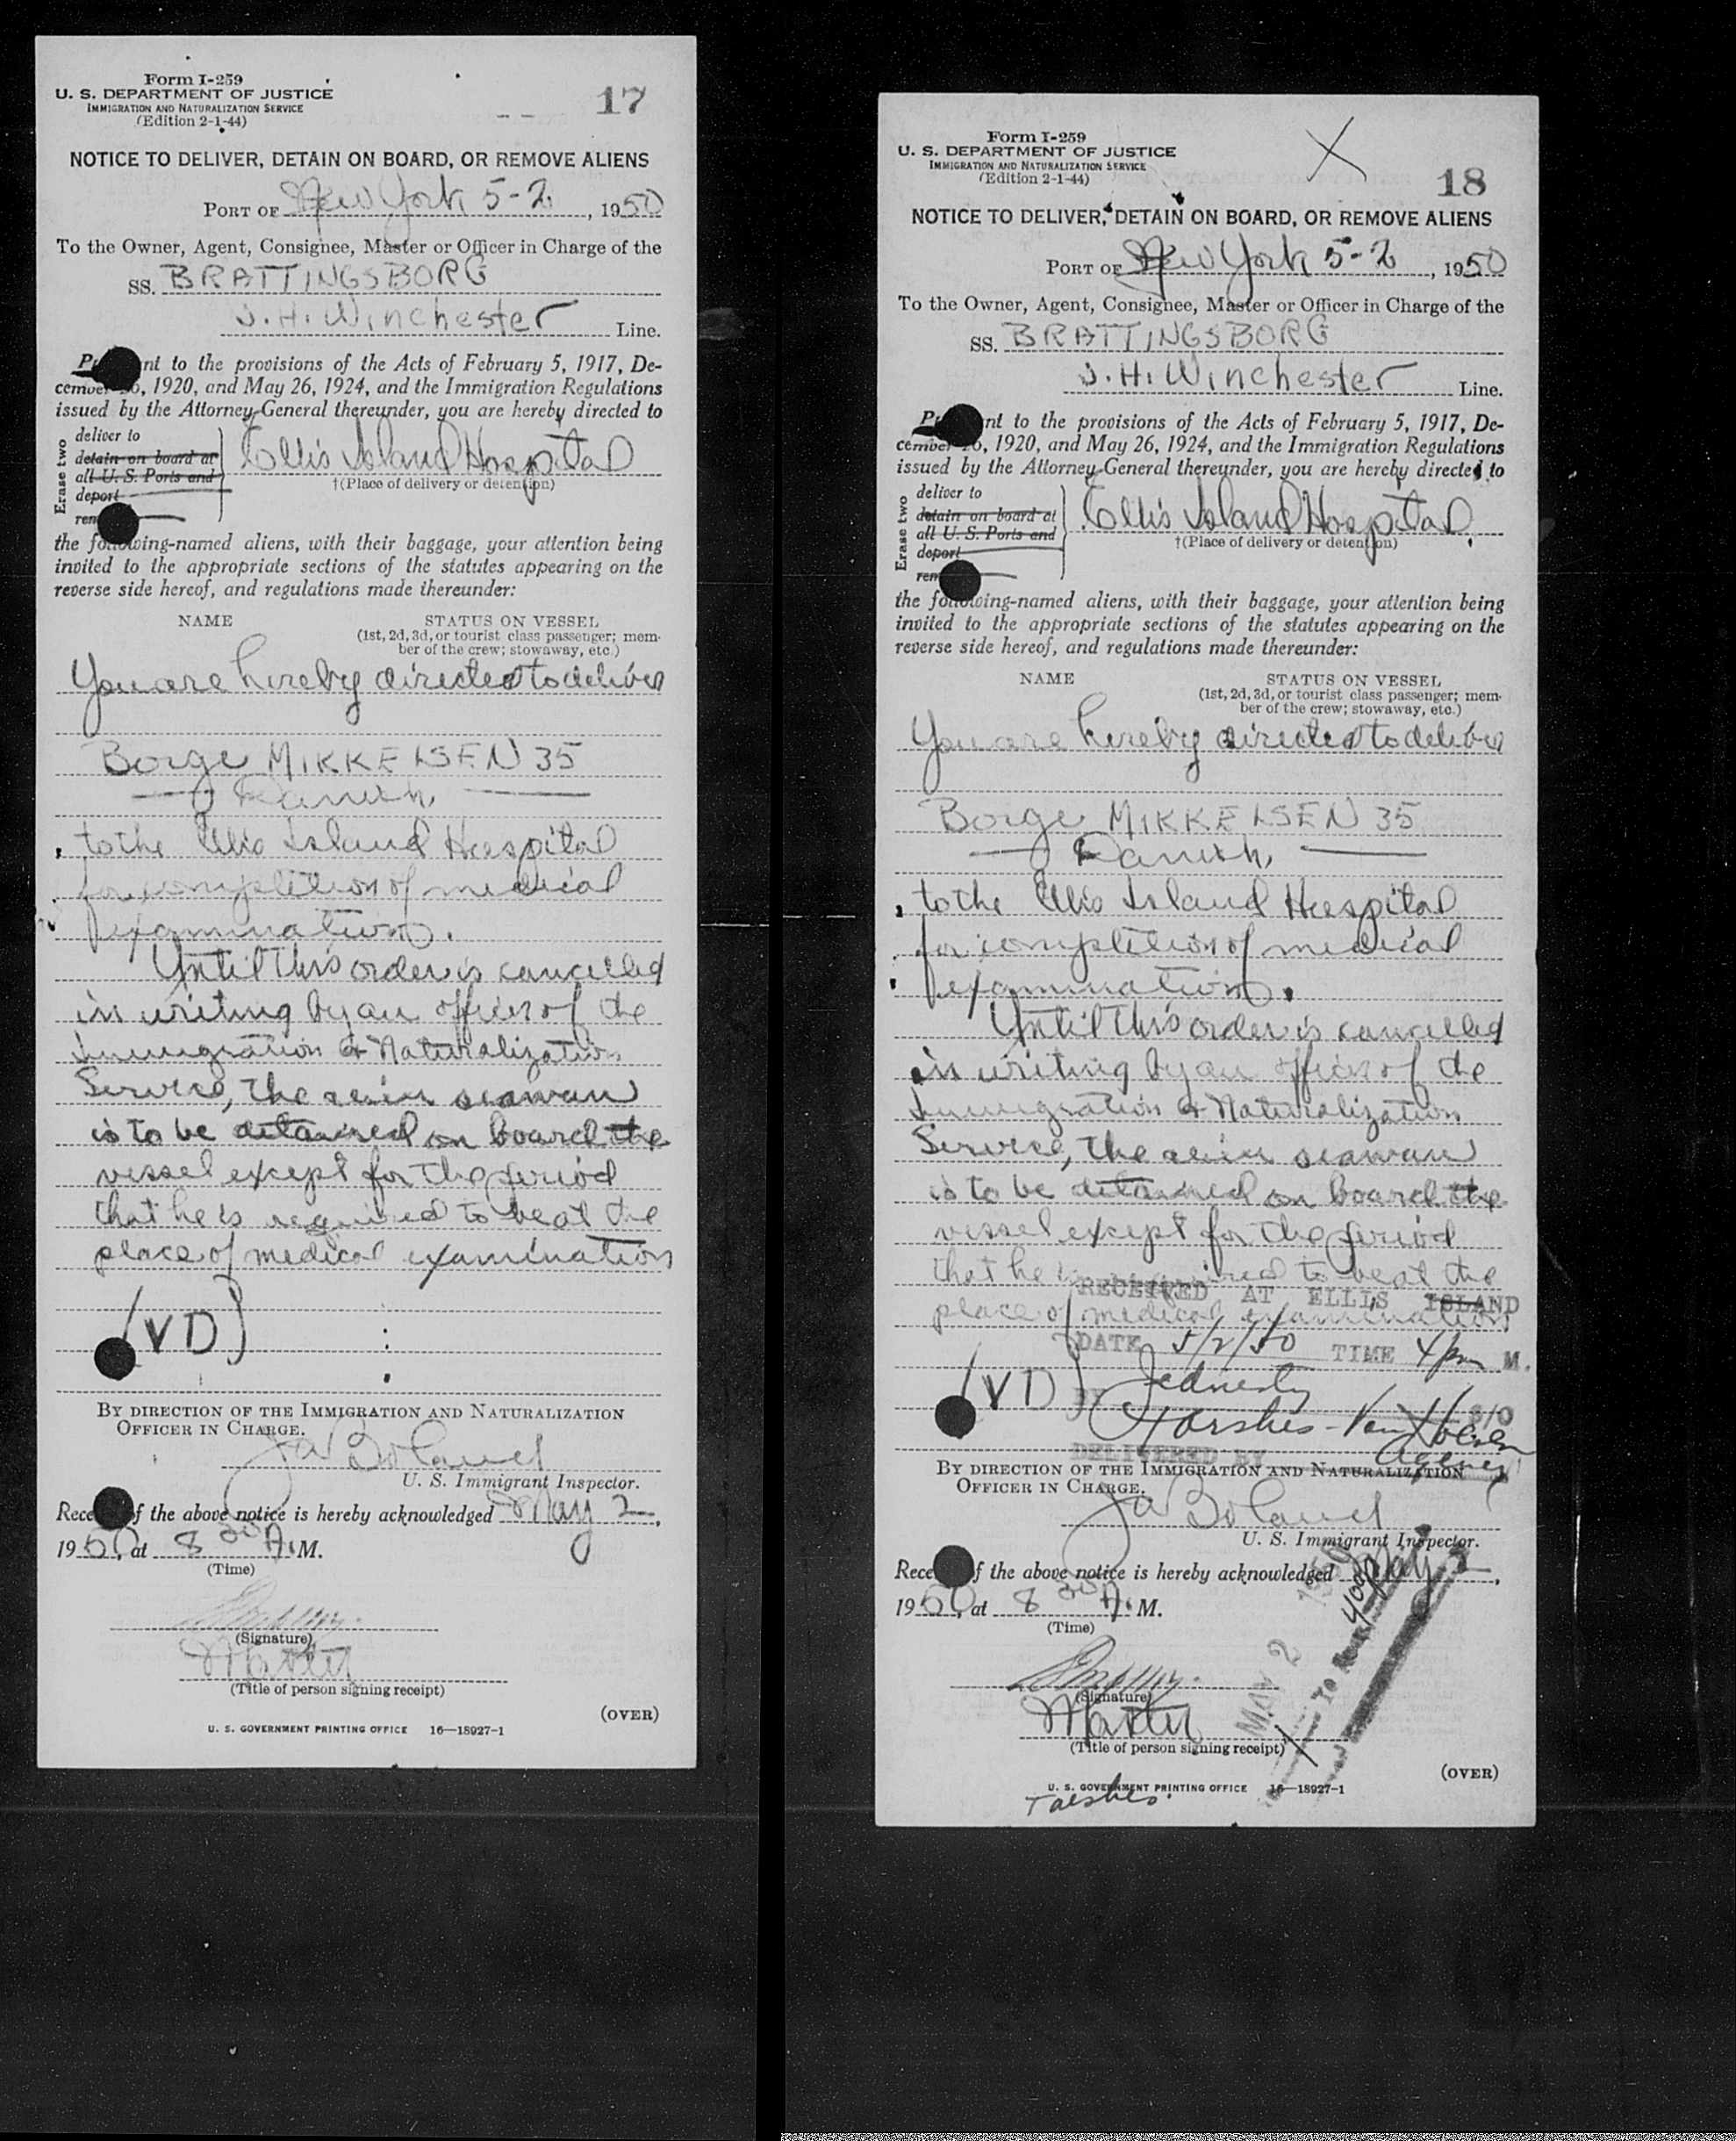 Form I-259
U. S. DEPARTMENT OF JUSTICE
IMMIGRATION AND NATURALIZATION SERVICE
(Edition 2-1-44)
17
NOTICE TO DELIVER, DETAIN ON BOARD, OR REMOVE ALIENS
PORT OF New York 5-2, 1950
To the Owner, Agent, Consignee, Master or Officer in Charge of the
SS. BRATTINGSBORG
J. H. Winchester Line.
nt to the provisions of the Acts of February 5, 1917, De-
cember 26, 1920, and May 26, 1924, and the Immigration Regulations
issued by the Attorney General thereunder, you are hereby directed to
Erase two
deliver to
detain on board at
all U. S. Ports and
deport
rem
Ellis Island Hospital
†(Place of delivery or detention)
the following-named aliens, with their baggage, your attention being
invited to the appropriate sections of the statutes appearing on the
reverse side hereof, and regulations made thereunder:
NAME
STATUS ON VESSEL
(1st, 2d, 3d, or tourist class passenger; mem-
ber of the crew; stowaway, etc.)
You are hereby directed to deliver
Borge MIKKELSEN 35
Danish
to the Ellis Island Hospital
for completion of medical
examination.
Until this order is cancelled
in writing by an officer of the
Immigration & Naturalization
Service, the alien seaman
is to be detained on board the
vessel except for the period
that he is required to be at the
place of medical examination
(VD)
BY DIRECTION OF THE IMMIGRATION AND NATURALIZATION
OFFICER IN CHARGE.
U. S. Immigrant Inspector.
Rece f the above notice is hereby acknowledged May 2,
1950, at 8 30 A. M.
(Time)
(Signature)
Master
(Title of person signing receipt)
(OVER)
U. S. GOVERNMENT PRINTING OFFICE 16—18927-1
Form I-259
U. S. DEPARTMENT OF JUSTICE
IMMIGRATION AND NATURALIZATION SERVICE
(Edition 2-1-44)
X
18
NOTICE TO DELIVER, DETAIN ON BOARD, OR REMOVE ALIENS
PORT OF New York 5-2, 1950
To the Owner, Agent, Consignee, Master or Officer in Charge of the
SS. BRATTINGSBORG
J. H. Winchester Line.
nt to the provisions of the Acts of February 5, 1917, De-
cember 26, 1920, and May 26, 1924, and the Immigration Regulations
issued by the Attorney General thereunder, you are hereby directed to
Erase two
deliver to
detain on board at
all U. S. Ports and
deport
rem
Ellis Island Hospital
†(Place of delivery or detention)
the following-named aliens, with their baggage, your attention being
invited to the appropriate sections of the statutes appearing on the
reverse side hereof, and regulations made thereunder:
NAME
STATUS ON VESSEL
(1st, 2d, 3d, or tourist class passenger; mem-
ber of the crew; stowaway, etc.)
You are hereby directed to deliver
Borge MIKKELSEN 35
Danish
to the Ellis Island Hospital
for completion of medical
examination.
Until this order is cancelled
in writing by an officer of the
Immigration & Naturalization
Service, the alien seaman
is to be detained on board the
vessel except for the period
that he is required to be at the
RECEIVED AT ELLIS ISLAND
place of medical examination
DATE 5/2/50 TIME 4 pm M.
(VD)
BY
DELIVERED BY
Agency
BY DIRECTION OF THE IMMIGRATION AND NATURALIZATION
OFFICER IN CHARGE.
U. S. Immigrant Inspector.
Rece f the above notice is hereby acknowledged May 2,
1950, at 8 30 A. M.
(Time)
(Signature)
Master
(Title of person signing receipt)
MAY 2 1950
(OVER)
U. S. GOVERNMENT PRINTING OFFICE 16—18927-1